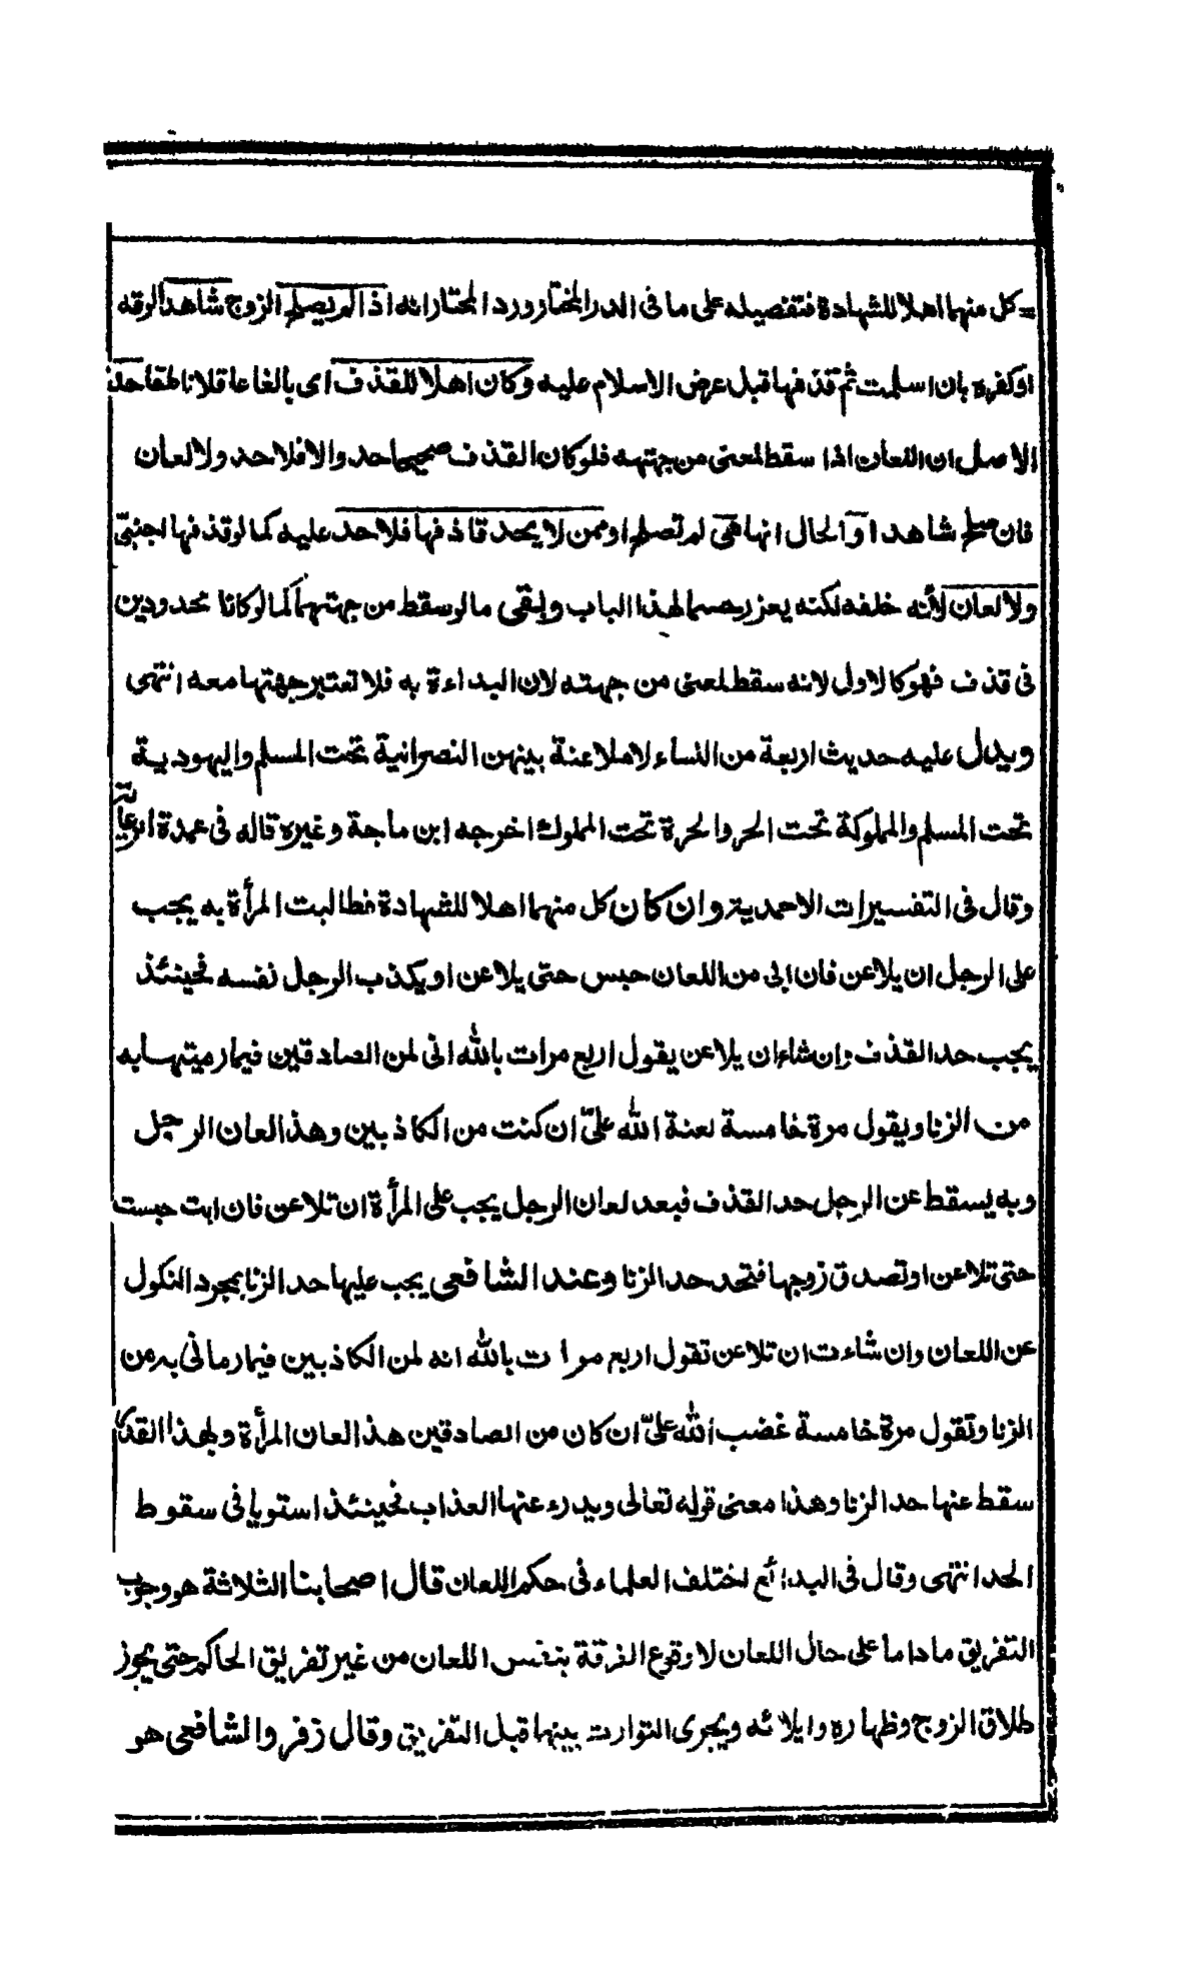 = كل منهما اهلا للشهادة فتفصيله على ما فى الدر المختار ورد المحتار انه اذا لم يصلح الزوج شاهدا لرقه
او كفره بان اسلمت ثم قذفها قبل عرض الاسلام عليه وكان اهلا للقذف اى بالغا عاقلا ناطقا حد
الاصل ان اللعان اذا سقط لمعنى من جهته فلو كان القذف صحيحا حد والا فلا حد ولا لعان
فان صلح شاهدا او الحال انها هى لم تصلح او ممن لا يحد قاذفها فلا حد عليه كما لو قذفها اجنبى
ولا لعان لأنه خلفه لكنه يعزر حسما لهذا الباب وبقى ما لو سقط من جهتهما كما لو كانا محدودين
فى قذف فهو كالاول لانه سقط لمعنى من جهته لان البداءة به فلا تعتبر جهتها معه انتهى
ويدل عليه حديث اربعة من النساء لا ملاعنة بينهن النصرانية تحت المسلم واليهودية
تحت المسلم والمملوكة تحت الحر والحرة تحت المملوك اخرجه ابن ماجة وغيره قاله فى عمدة الرعاية
وقال فى التفسيرات الاحمدية وان كان كل منهما اهلا للشهادة فطالبت المرأة به يجب
على الرجل ان يلاعن فان ابى من اللعان حبس حتى يلاعن او يكذب الرجل نفسه فحينئذ
يجب حد القذف وان شاء ان يلاعن يقول اربع مرات بالله انى لمن الصادقين فيما رميتها به
من الزنا ويقول مرة خامسة لعنة الله علىّ ان كنت من الكاذبين وهذا لعان الرجل
وبه يسقط عن الرجل حد القذف فبعد لعان الرجل يجب على المرأة ان تلاعن فان ابت حبست
حتى تلاعن او تصدق زوجها فتحد حد الزنا وعند الشافعى يجب عليها حد الزنا بمجرد النكول
عن اللعان وان شاءت ان تلاعن تقول اربع مرات بالله انه لمن الكاذبين فيما رمانى به من
الزنا وتقول مرة خامسة غضب الله علىّ ان كان من الصادقين هذا لعان المرأة وبهذا القدر
سقط عنها حد الزنا وهذا معنى قوله تعالى ويدرء عنها العذاب فحينئذ استويا فى سقوط
الحد انتهى وقال فى البدائع اختلف العلماء فى حكم اللعان قال اصحابنا الثلاثة هو وجوب
التفريق ما داما على حال اللعان لا وقوع الفرقة بنفس اللعان من غير تفريق الحاكم حتى يجوز
طلاق الزوج وظهاره وايلائه ويجرى التوارث بينهما قبل التفريق وقال زفر والشافعى هو